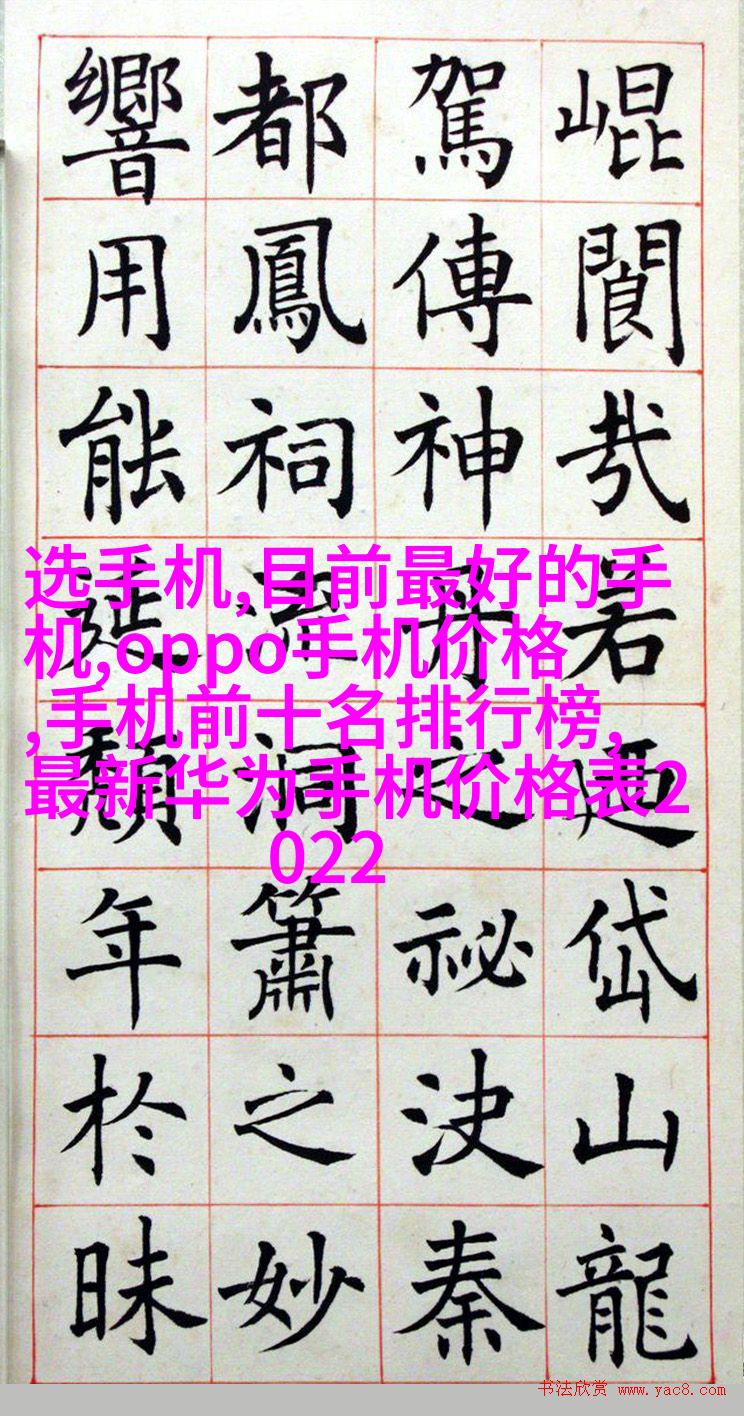 崐閬哉若迺岱山龍
駕傳神丹之祕決秦
都鳳祠流洞簫之妙
響用能延頹年於昧
选手机,目前最好的手
机,oppo手机价格
,手机前十名排行榜,
最新华为手机价格表2
022
书法欣赏 www.yac8.com